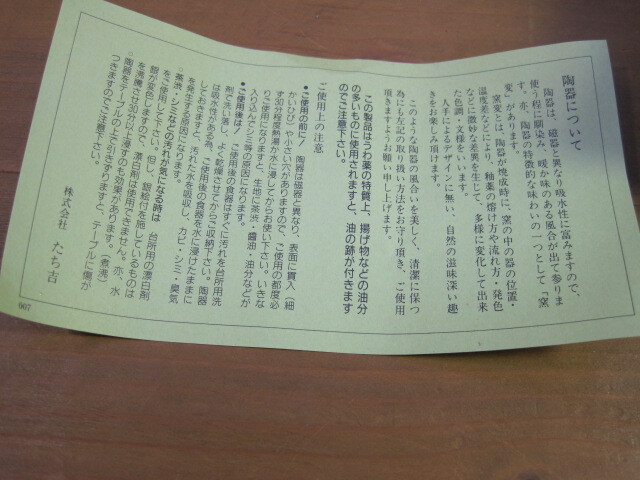 陶器について
陶器は、磁器と異なり吸水性に富みますので、
使う程に馴染み、暖か味のある風合が出て参りま
す。亦、陶器の特徴的な味わいの一つとして「窯
変」があります。
窯変とは、陶器が焼成時に、窯の中の器の位置・
温度差などにより、釉薬の熔け方や流れ方・発色
などに微妙な差異を生じて、多様に変化して出来
た色調・文様をいいます。
人手によるデザインに無い、自然の滋味深い趣
きをお楽しみ頂けます。
このような陶器の風合いを美しく、清潔に保つ
為にも左記の取り扱い方法をお守り頂き、ご使用
頂きますようお願い申し上げます。
この製品はうわ薬の特質上、揚げ物などの油分
の多いものに使用されますと、油の跡が付きます
のでご注意下さい。
ご使用上の注意
●ご使用の前に! 陶器は磁器と異なり、表面に貫入(細
かいひび)や小さい穴がありますので、ご使用の都度必
ず30分程度熱湯か水に浸してからお使い下さい。いきな
りご使用になりますと、生地に茶渋・醤油・油分などが
入り込んでシミ等の原因になります。
●ご使用後は ご使用後の食器はすぐに汚れを台所用洗
剤で洗い落し、よく乾燥させてからご収納下さい。陶器
は吸水性がある為、ご使用後の食器を水に浸けたままに
しておきますと、汚れた水を吸収し、カビ・シミ・臭気
を発生する原因になります。
○茶渋・シミなどの汚れが気になる時は 台所用の漂白剤
をご使用して下さい。但し、銀絵付を施しているものは
銀が変色しますので、漂白剤は使用できません。亦、水
を沸騰させ30分以上浸すのも効果があります。(煮沸)
○陶器をテーブルの上で引きずりますと、テーブルに傷が
つきますのでご注意下さい。
株式会社 たち吉
007